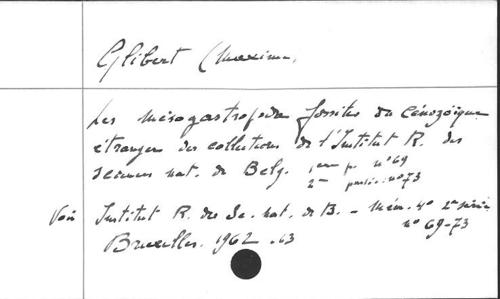 Glibert (Maxime)
Les mésogastropodes fossiles du Cénozoïque
étranger des collections de l'Institut R. des
Sciences nat. de Belg. 1ère p. n° 69
2me partie. n° 73
Voir Institut R. des Sc. nat. de B. - Mém. 2e série
n° 69-73
Bruxelles. 1962-63